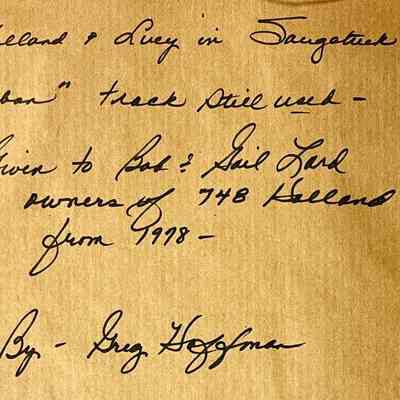 olland & Lucy in Saugatuck
ban" track still used -
Given to Bob & Gail Lard
owners of 748 Holland
from 1998 -
By - Greg Hoffman